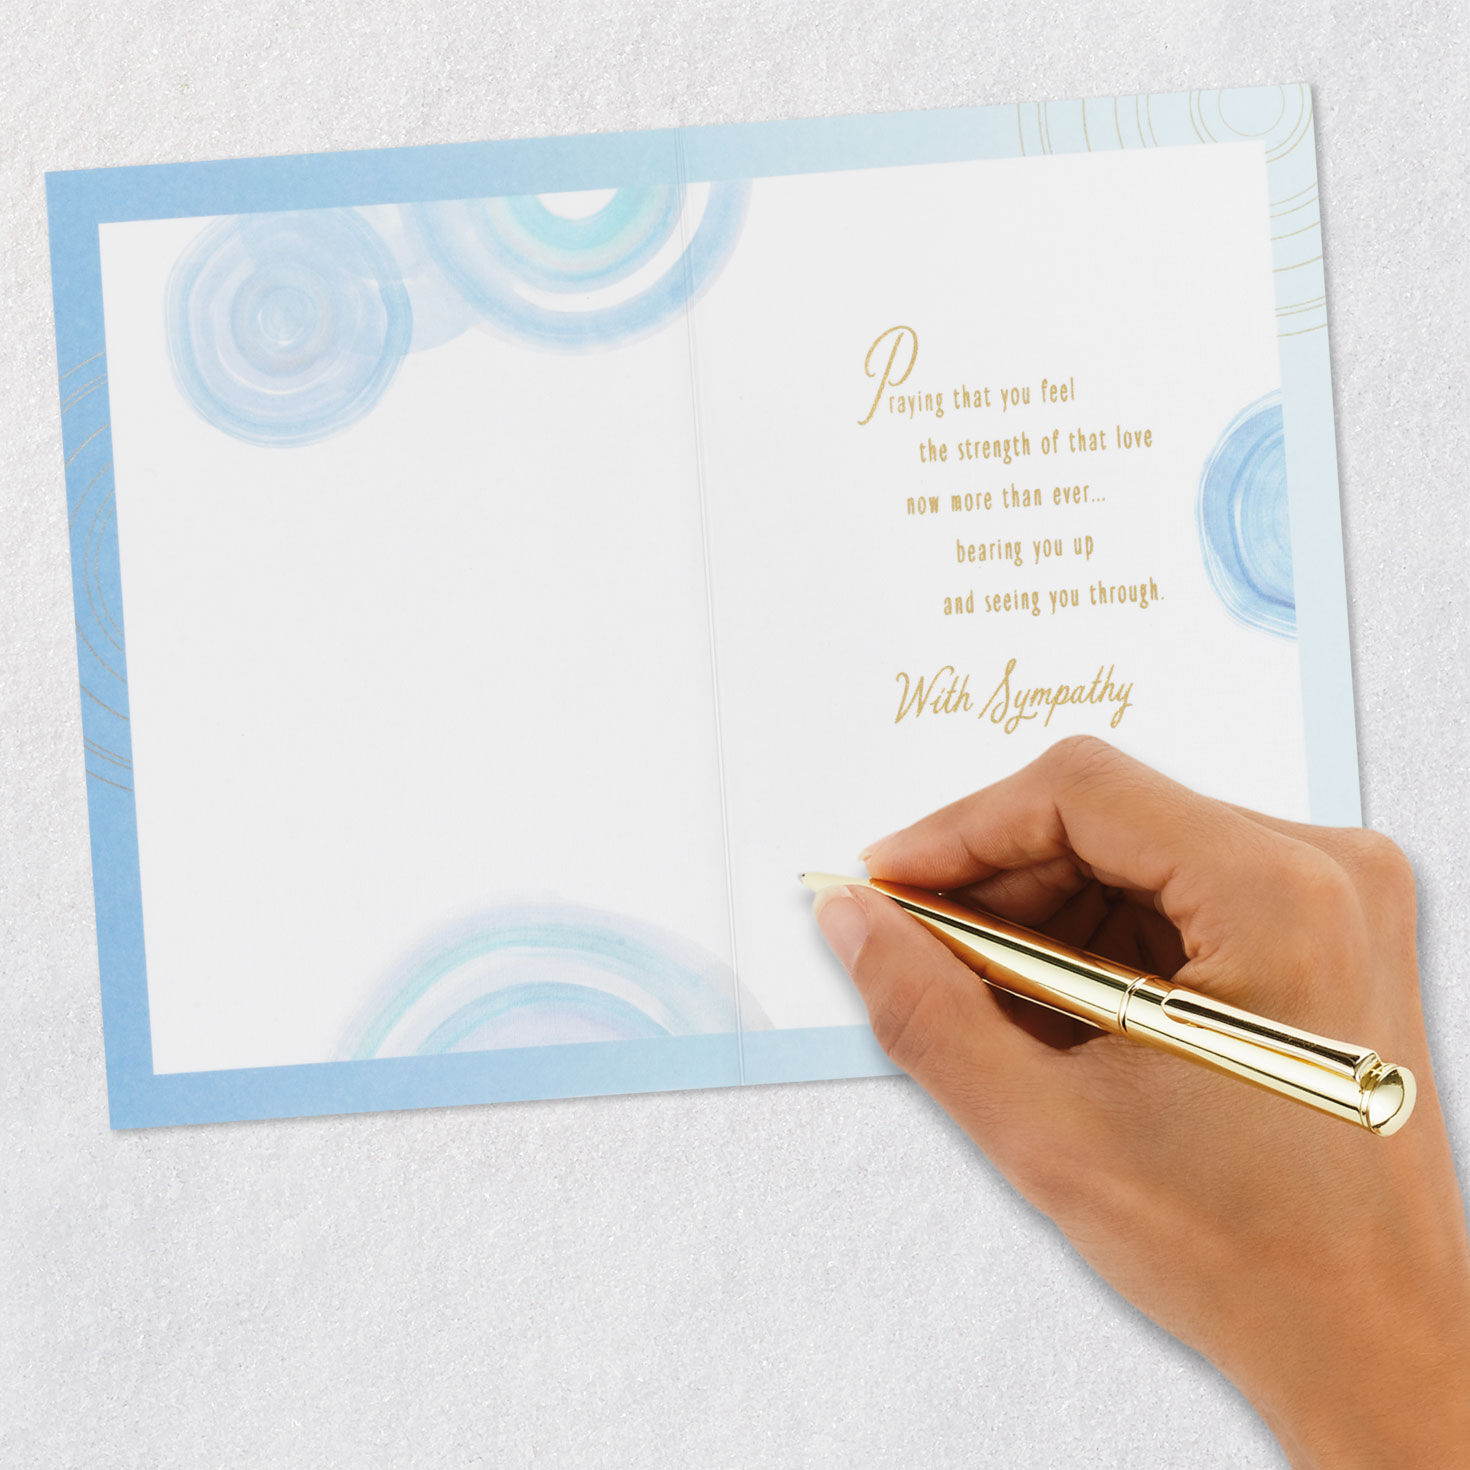 Praying that you feel
the strength of that love
now more than ever...
bearing you up
and seeing you through.
With Sympathy